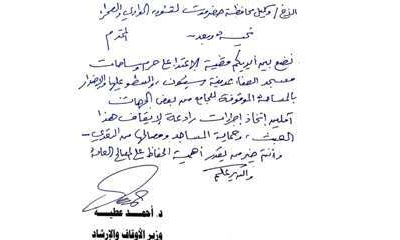 الأخ / وكيل محافظة حضرموت لشئون الوادي والصحراء
المحترم
تحية وبعد ،،
نضع بين أيديكم قضية الاعتداء على حرم وساحات
مسجد الصفاء بمدينة سيئون والسطو عليها والإضرار
بالمساحة الموقوفة للجامع من بعض الجهات
آملين إتخاذ إجراءات رادعة لإيقاف هذا
العبث وحماية المساجد وممتلكاتها من التعدي
وأنتم خير من يقدر أهمية الحفاظ على المصالح العامة
والله يرعاكم
د. أحمد عطيه
وزير الأوقاف والإرشاد